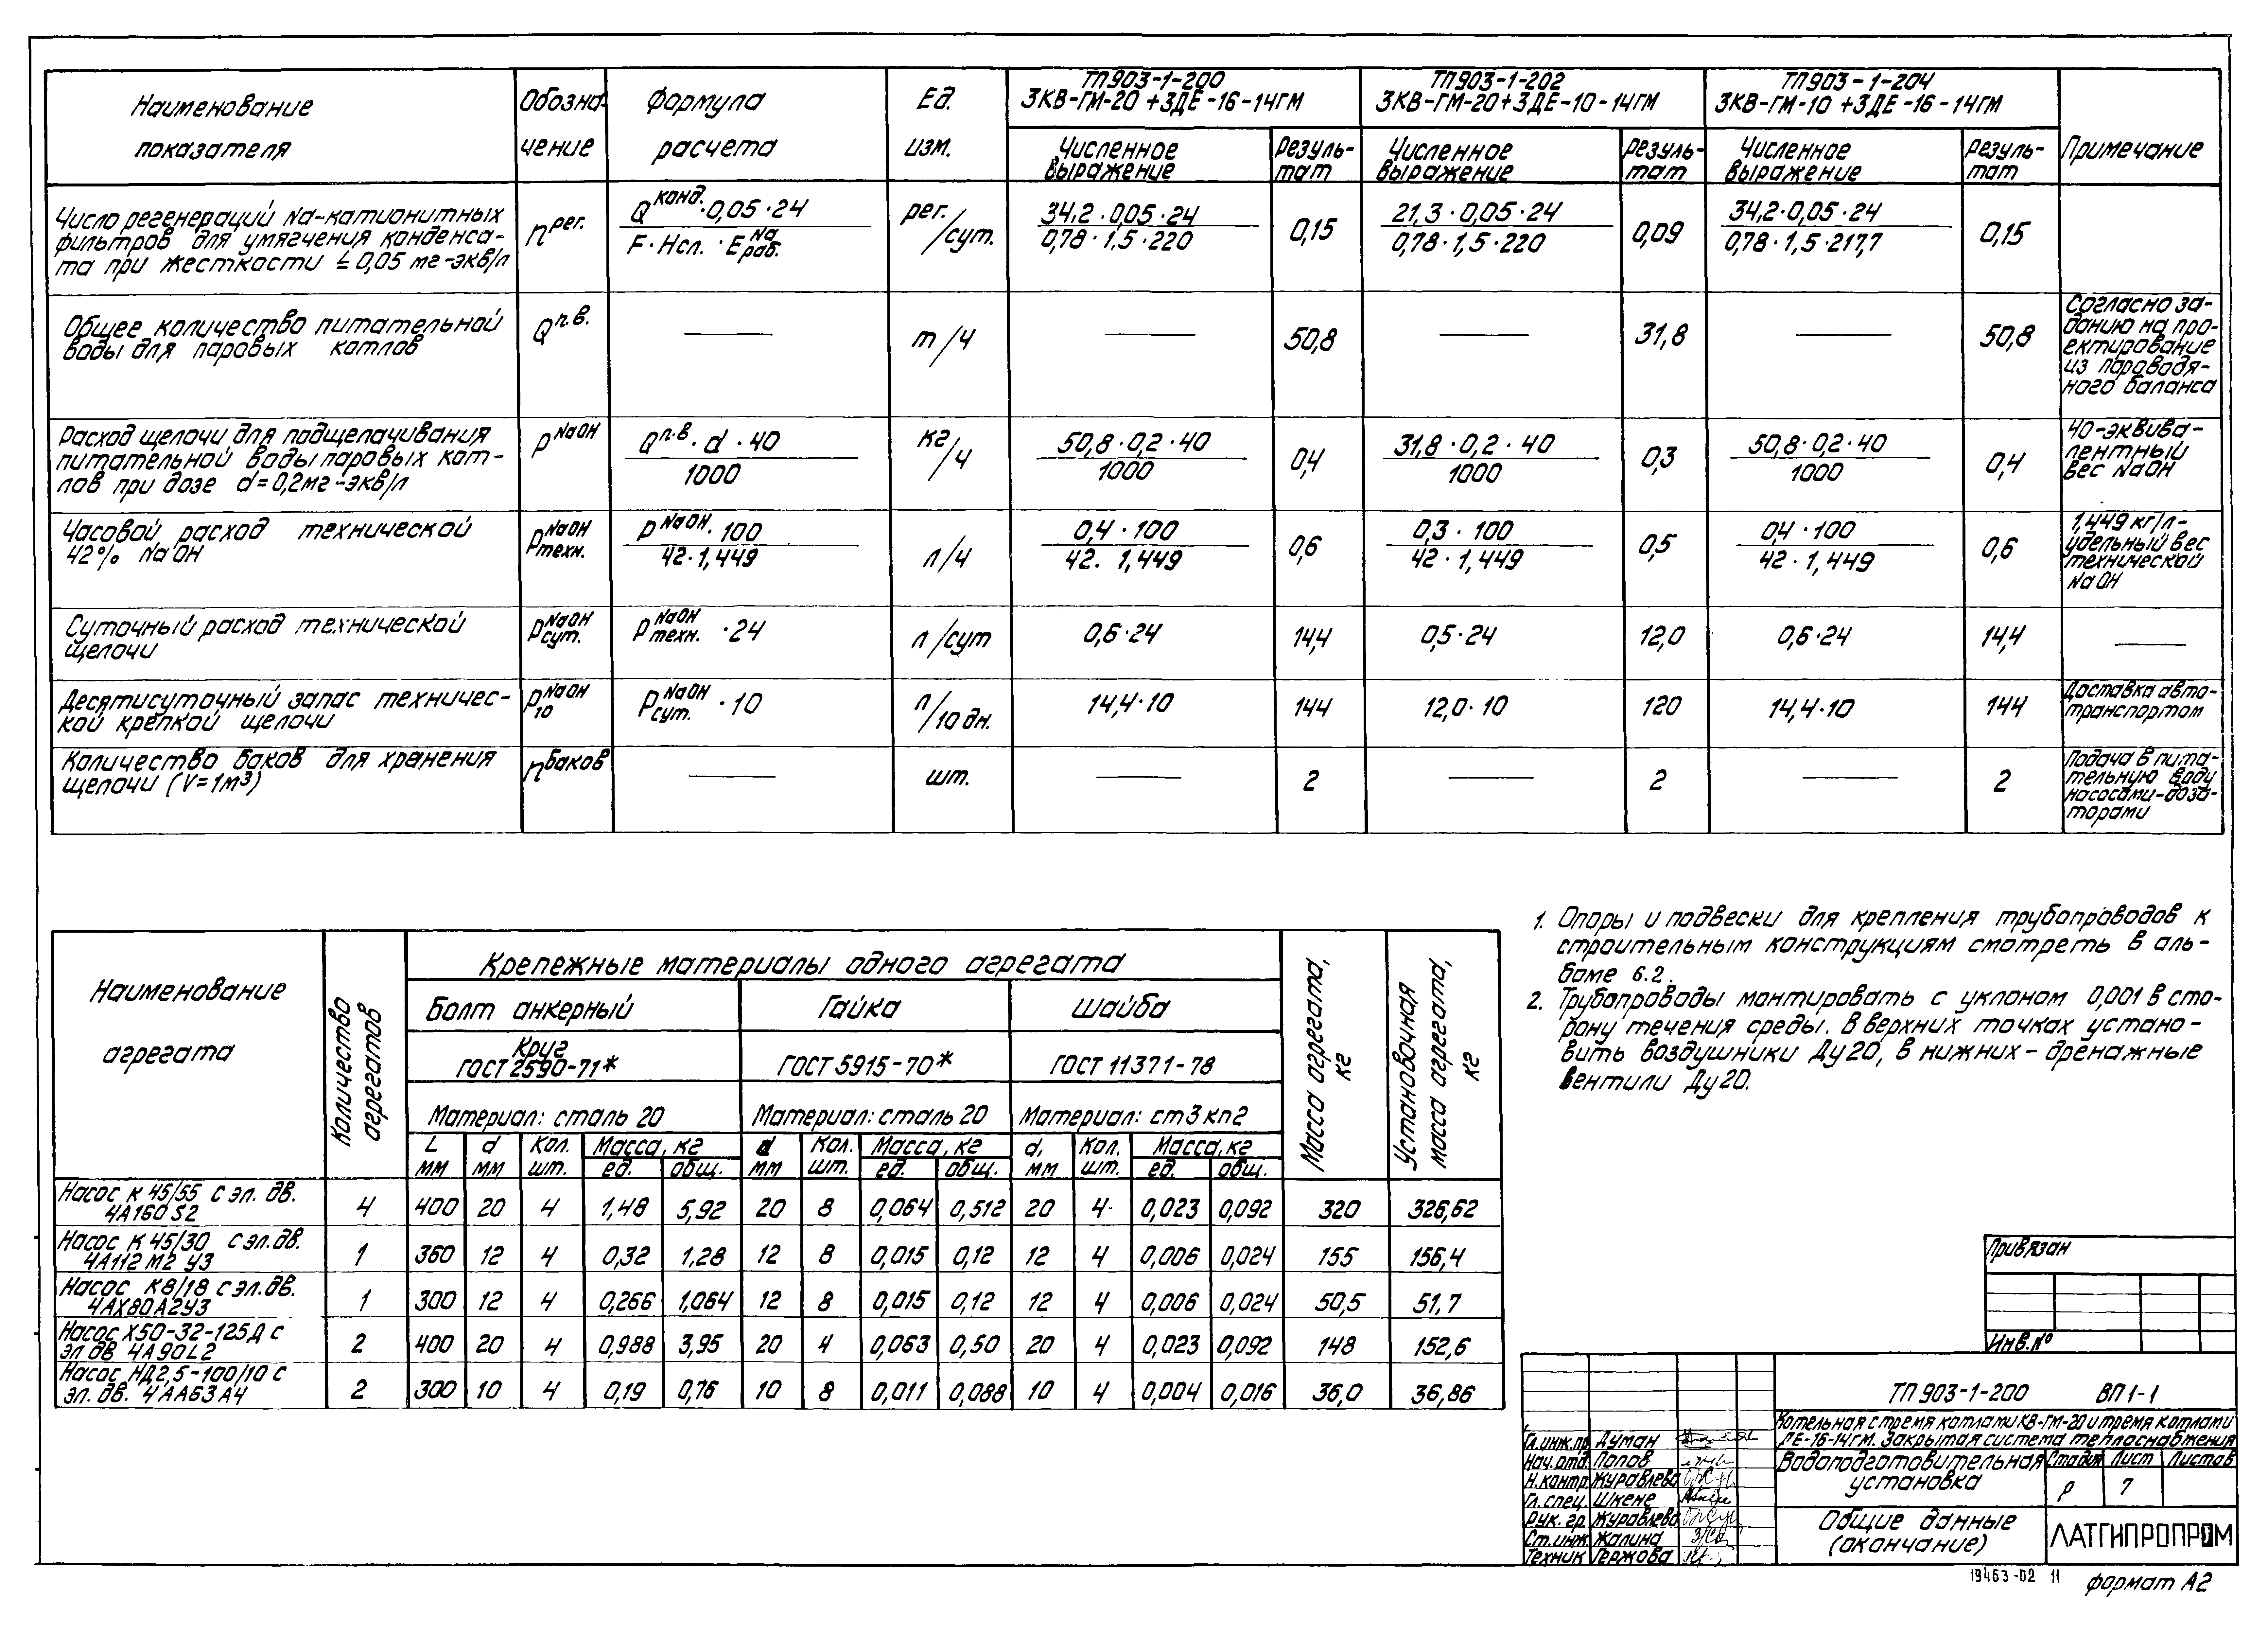 Наименование показателя
Обозна-чение
Формула расчета
Ед. изм.
ТП903-1-200
3КВ-ГМ-20+3ДЕ-16-14ГМ
ТП903-1-202
3КВ-ГМ-20+3ДЕ-10-14ГМ
ТП903-1-204
3КВ-ГМ-10+3ДЕ-16-14ГМ
Примечание
Численное выражение
Резуль-тат
Численное выражение
Резуль-тат
Численное выражение
Резуль-тат
Число регенераций Na-катионитных
фильтров для умягчения конденса-
та при жесткости ≤ 0,05 мг-экв/л
n рег.
Q конд.·0,05·24
F·Hсл.·E Na раб.
рег./сут.
34,2·0,05·24
0,78·1,5·220
0,15
21,3·0,05·24
0,78·1,5·220
0,09
34,2·0,05·24
0,78·1,5·217,7
0,15
Общее количество питательной
воды для паровых котлов
Q п.в.
т/ч
50,8
31,8
50,8
Согласно за-
данию на про-
ектирование
из пароводя-
ного баланса
Расход щелочи для подщелачивания
питательной воды паровых кот-
лов при дозе d=0,2мг-экв/л
P NaOH
Q п.в·d·40
1000
кг/ч
50,8·0,2·40
1000
0,4
31,8·0,2·40
1000
0,3
50,8·0,2·40
1000
0,4
40-эквива-
лентный
вес NaOH
Часовой расход технической
42% NaOH
P NaOH техн.
P NaOH·100
42·1,449
л/ч
0,4·100
42·1,449
0,6
0,3·100
42·1,449
0,5
0,4·100
42·1,449
0,6
1,449 кг/л-
удельный вес
технической
NaOH
Суточный расход технической
щелочи
P NaOH сут.
P NaOH техн.·24
л/сут
0,6·24
14,4
0,5·24
12,0
0,6·24
14,4
Десятисуточный запас техничес-
кой крепкой щелочи
P NaOH 10
P NaOH сут.·10
л/10 дн.
14,4·10
144
12,0·10
120
14,4·10
144
Доставка авто-
транспортом
Количество баков для хранения
щелочи (V=1м³)
n баков
шт.
2
2
2
Подача в пита-
тельную воду
насосами-доза-
торами
Наименование агрегата
Количество агрегатов
Крепежные материалы одного агрегата
Масса агрегата, кг
Установочная масса агрегата, кг
Болт анкерный
Гайка
Шайба
Круг
ГОСТ 2590-71*
ГОСТ 5915-70*
ГОСТ 11371-78
Материал: сталь 20
Материал: сталь 20
Материал: ст3кп2
L мм
d мм
Кол. шт.
Масса, кг
ед.
общ.
d мм
Кол. шт.
Масса, кг
ед.
общ.
d, мм
Кол. шт.
Масса, кг
ед.
общ.
Насос К 45/55 с эл. дв.
4А160S2
4 400 20 4 1,48 5,92 20 8 0,064 0,512 20 4 0,023 0,092 320 326,62
Насос К 45/30 с эл.дв.
4А112М2 У3
1 360 12 4 0,32 1,28 12 8 0,015 0,12 12 4 0,006 0,024 155 156,4
Насос К8/18 с эл.дв.
4АХ80А2У3
1 300 12 4 0,266 1,064 12 8 0,015 0,12 12 4 0,006 0,024 50,5 51,7
Насос Х50-32-125Д с
эл дв 4А90L2
2 400 20 4 0,988 3,95 20 4 0,063 0,50 20 4 0,023 0,092 148 152,6
Насос НД2,5-100/10 с
эл. дв. 4АА63А4
2 300 10 4 0,19 0,76 10 8 0,011 0,088 10 4 0,004 0,016 36,0 36,86
1. Опоры и подвески для крепления трубопроводов к
строительным конструкциям смотреть в аль-
боме 6.2.
2. Трубопроводы монтировать с уклоном 0,001 в сто-
рону течения среды. В верхних точках устано-
вить воздушники Ду20, в нижних-дренажные
вентили Ду20.
Привязан
Инв.№
ТП 903-1-200 ВП1-1
Котельная с тремя котлами КВ-ГМ-20 и тремя котлами
ДЕ-16-14ГМ. Закрытая система теплоснабжения
Гл.инж.пр. Думан
Нач.отд. Попов
Н.контр. Журавлева
Гл.спец. Шкене
Рук. гр. Журавлева
Ст.инж. Жалина
Техник Гержова
Водоподготовительная
установка
Стадия Лист Листов
Р 7
Общие данные
(окончание)
ЛАТГИПРОПРОМ
19463-02 11
формат А2